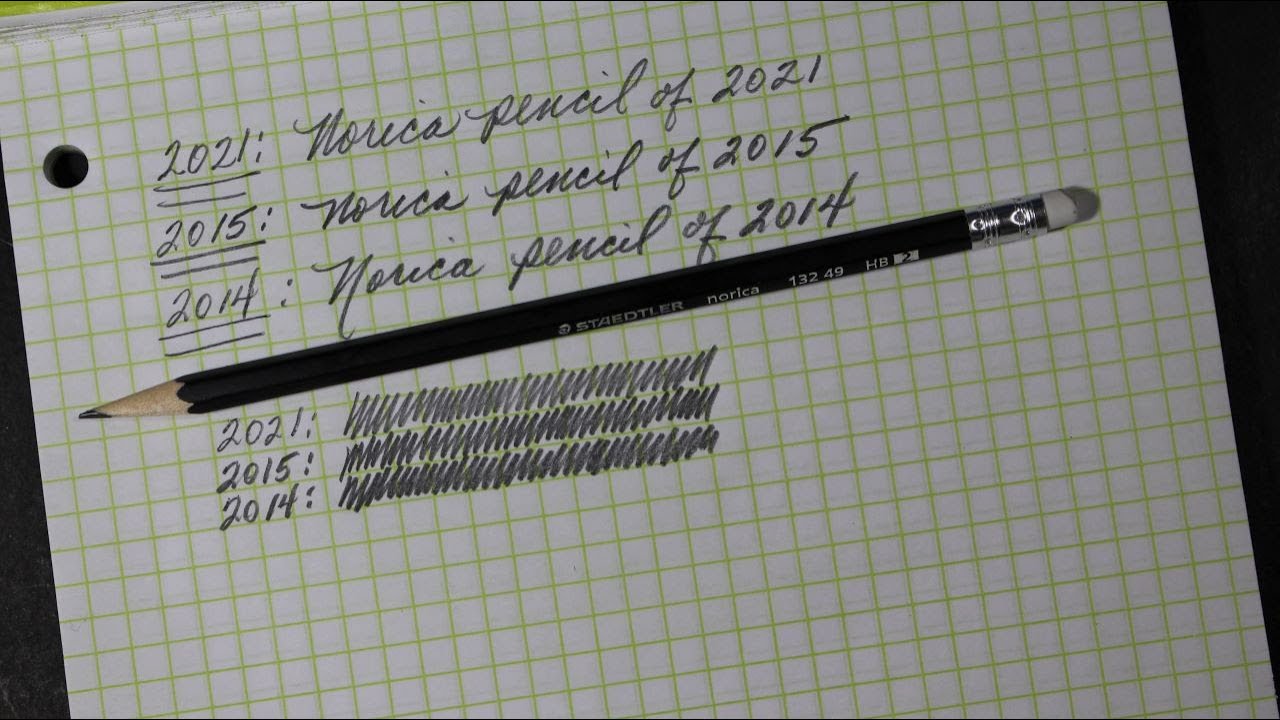 2021: Norica pencil of 2021
2015: Norica pencil of 2015
2014: Norica pencil of 2014
STAEDTLER norica 132 49 HB 2
2021:
2015:
2014: